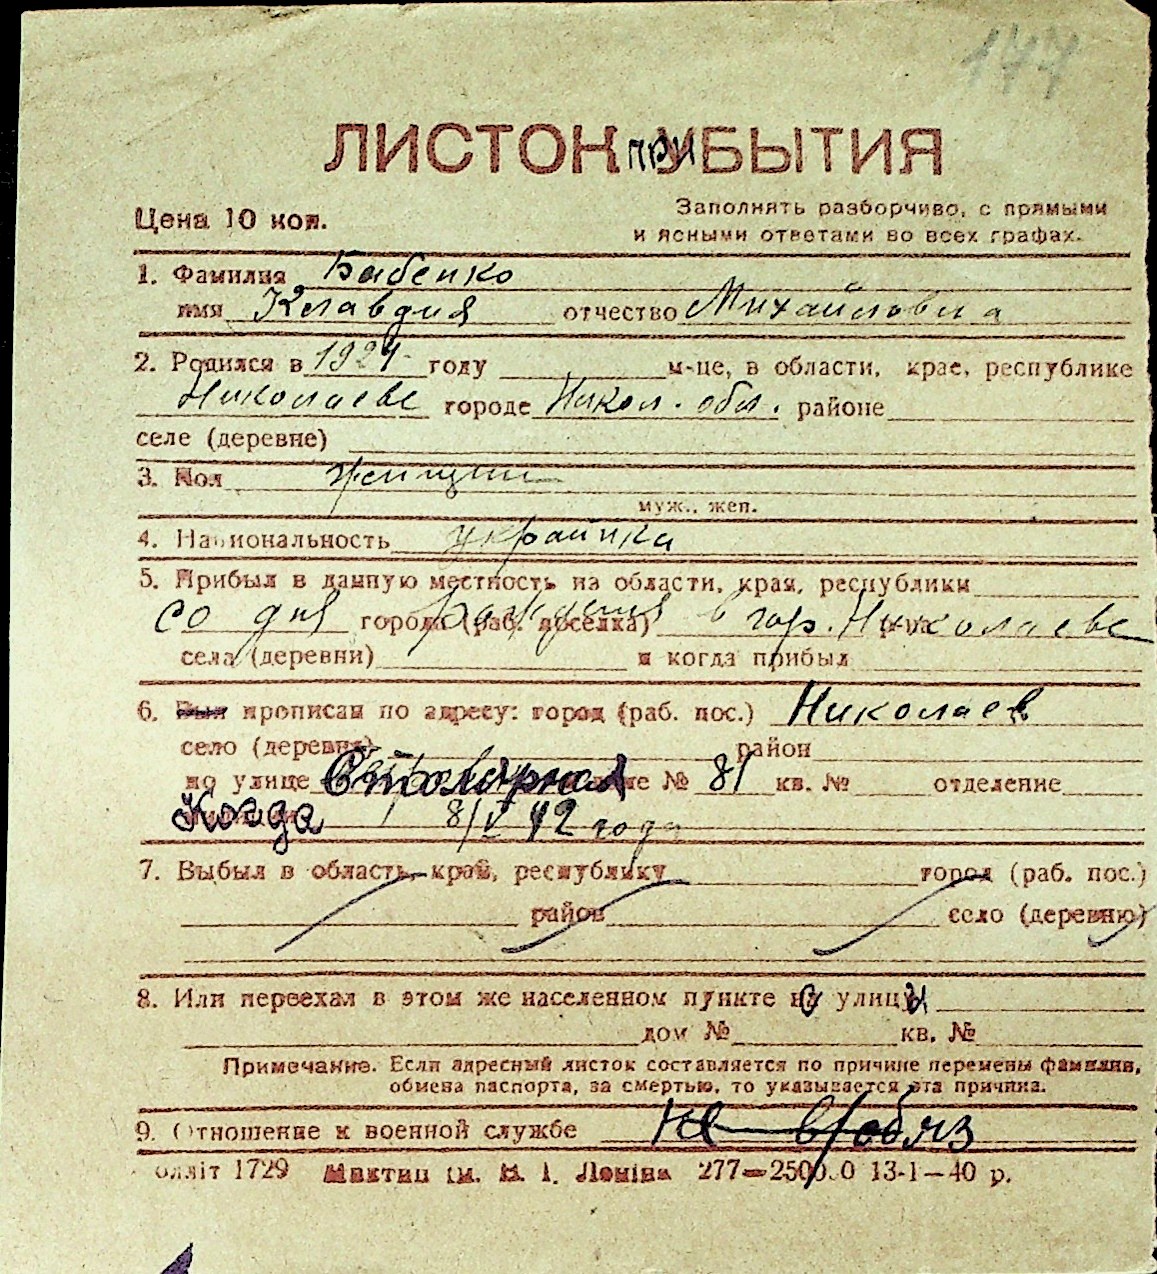 177
ЛИСТОК приБЫТИЯ
Цена 10 коп.
Заполнять разборчиво, с прямыми
и ясными ответами во всех графах.
1. Фамилия Бабенко
имя Клавдия отчество Михайловна
2. Родился в 1924 году м-це, в области, крае, республике
Николаеве городе Никол. обл. районе
селе (деревне)
3. Пол женщин
муж., жен.
4. Национальность украинка
5. Прибыл в данную местность из области, края, республики
со дня города (раб. поселка) рождения в гор. Николаеве
села (деревни) и когда прибыл
6. Был прописан по адресу: город (раб. пос.) Николаев
село (деревня) район
по улице Столярная № 81 кв. № отделение
Когда 8/V 42 года
7. Выбыл в область, край, республику город (раб. пос.)
район село (деревню)
8. Или переехал в этом же населенном пункте с улицы
дом № кв. №
Примечание. Если адресный листок составляется по причине перемены фамилии,
обмена паспорта, за смертью, то указывается эта причина.
9. Отношение к военной службе не в/обяз
олліт 1729 ім. В. І. Леніна 277—25000 13-1—40 р.